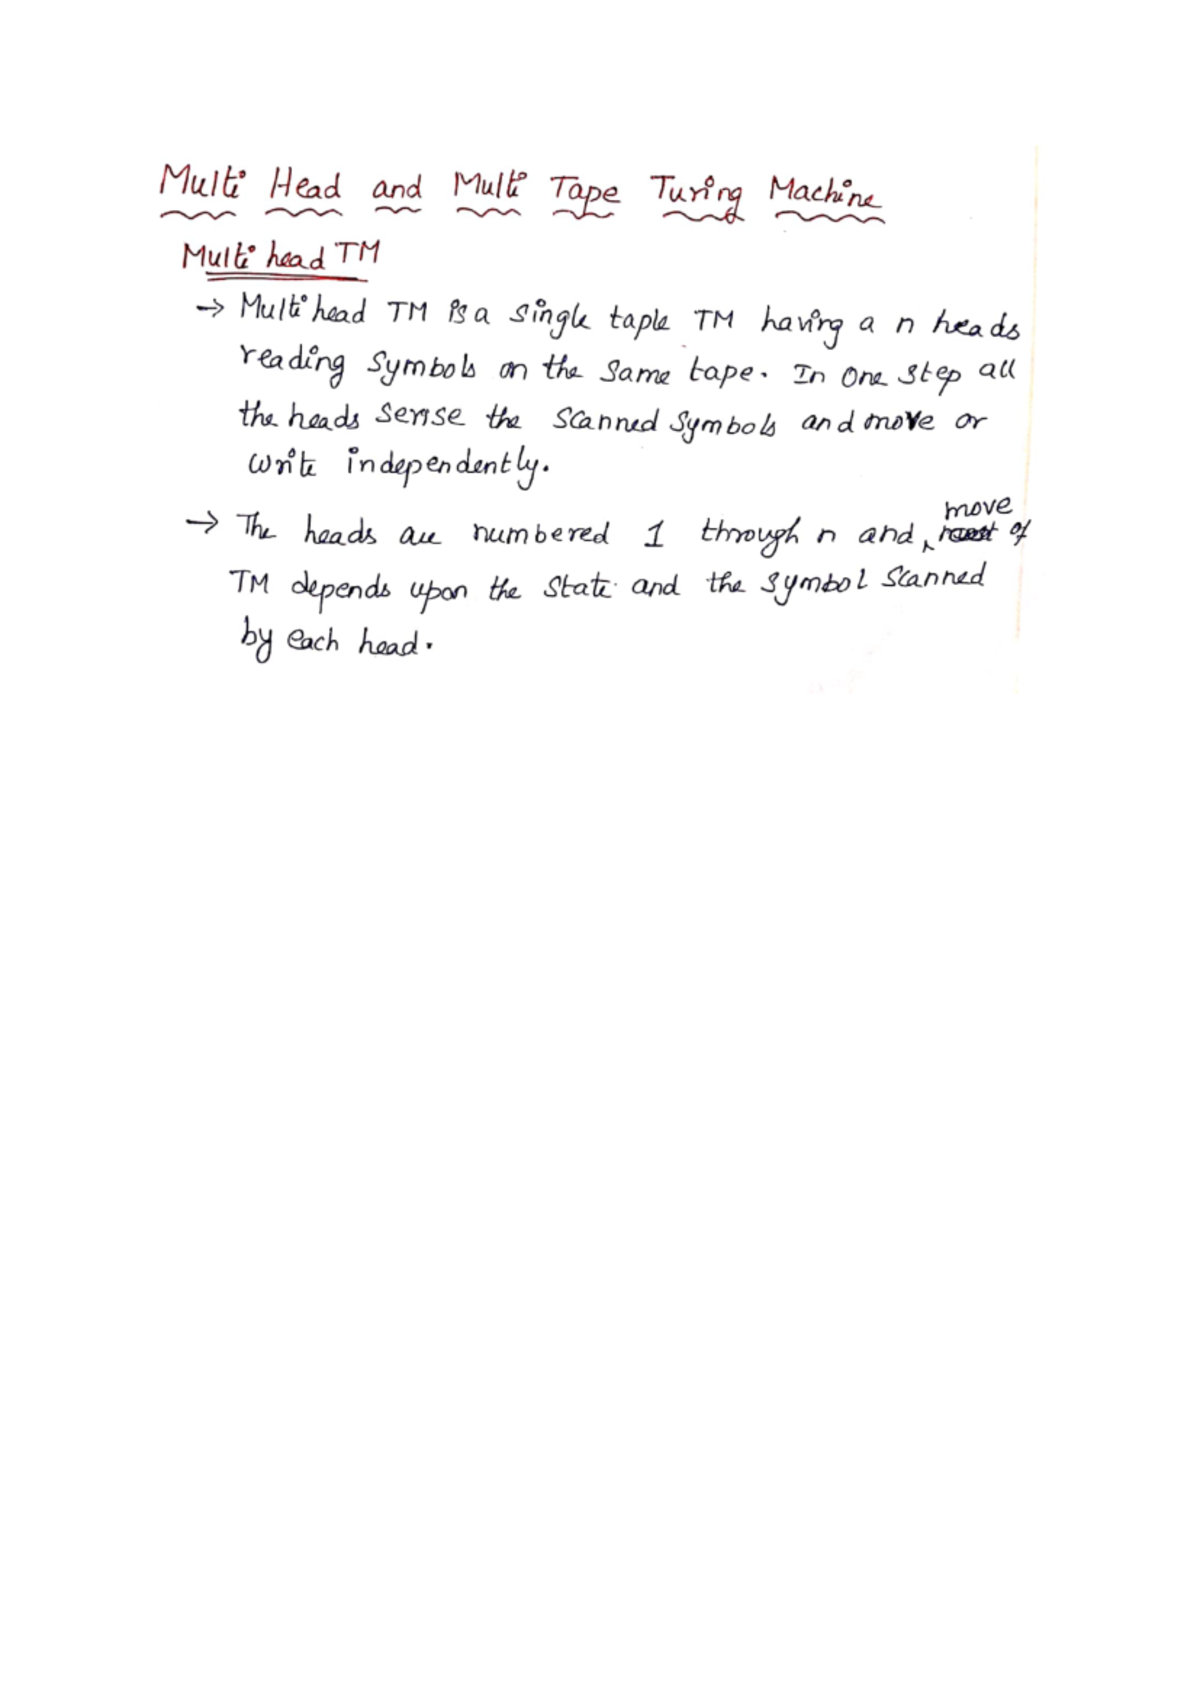 Multi Head and Multi Tape Turing Machine
Multi head TM
→ Multi head TM is a single taple TM having a n heads
reading symbols on the same tape. In one step all
the heads sense the scanned symbols and move or
write independently.
move
→ The heads are numbered 1 through n and of
TM depends upon the state and the symbol scanned
by each head.